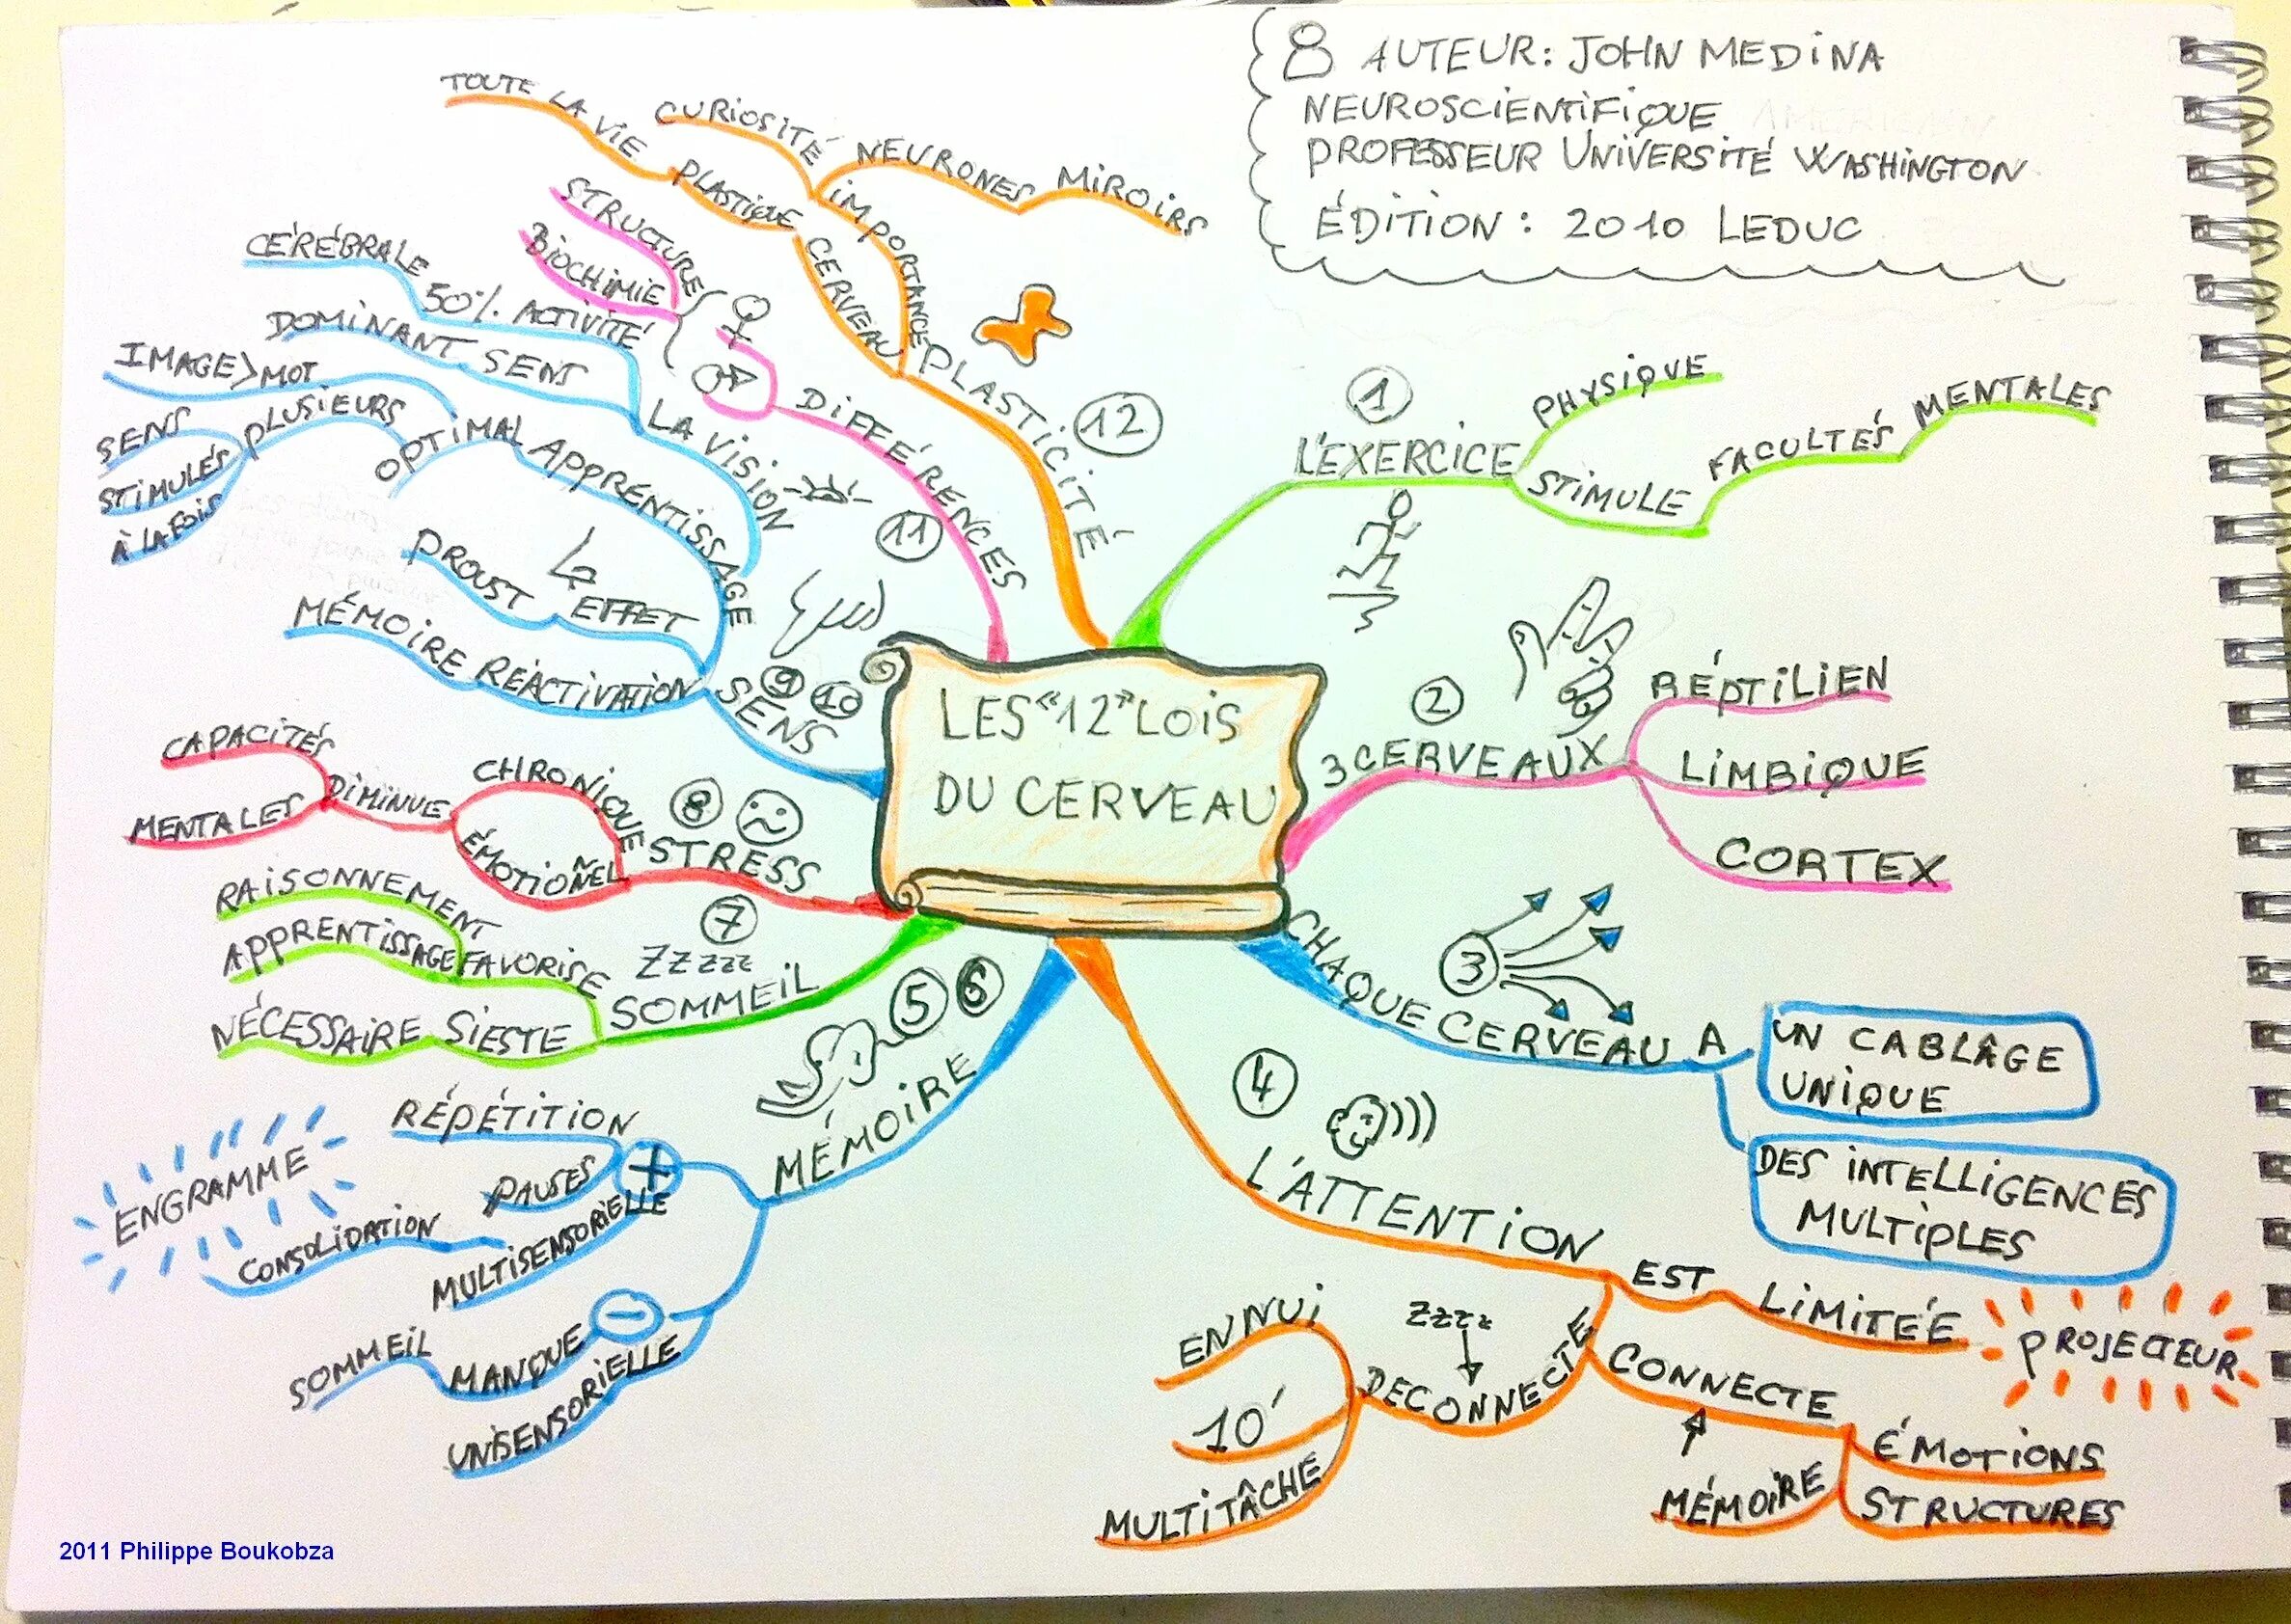 AUTEUR: JOHN MEDINA
NEUROSCIENTIFIQUE
PROFESSEUR UNIVERSITÉ WASHINGTON
ÉDITION: 2010 LEDUC
LES "12" LOIS
DU CERVEAU
1
L'EXERCICE
PHYSIQUE
STIMULE
FACULTÉS MENTALES
2
3 CERVEAUX
RÉPTILIEN
LIMBIQUE
CORTEX
3
CHAQUE CERVEAU A
UN CABLÂGE
UNIQUE
DES INTELLIGENCES
MULTIPLES
4
L'ATTENTION
EST LIMITÉE
PROJECTEUR
CONNECTE
ÉMOTIONS
STRUCTURES
MÉMOIRE
ZZZZ
DECONNECTE
ENNUI
10'
MULTITÂCHE
5 6
MÉMOIRE
+
RÉPÉTITION
PAUSES
MULTISENSORIELLE
CONSOLIDATION
ENGRAMME
-
MANQUE
SOMMEIL
UNISENSORIELLE
7
ZZZZZ
SOMMEIL
FAVORISE
RAISONNEMENT
APPRENTISSAGE
SIESTE
NÉCESSAIRE
8
STRESS
CHRONIQUE
ÉMOTIOÑEL
DIMINUE
CAPACITÉS
MENTALES
9 10
SENS
LA VISION
50% ACTIVITÉ
CÉRÉBRALE
DOMINANT SENS
IMAGE>MOT
APPRENTISSAGE
OPTIMAL
PLUSIEURS
SENS
STIMULÉS
À LA FOIS
EFFET
PROUST
RÉACTIVATION
MÉMOIRE
11
DIFFÉRENCES
♀
♂
STRUCTURE
BIOCHIMIE
12
PLASTICITÉ
CERVEAU
PLASTIQUE
TOUTE LA VIE
IMPORTANCE
CURIOSITÉ
NEURONES MIROIRS
2011 Philippe Boukobza